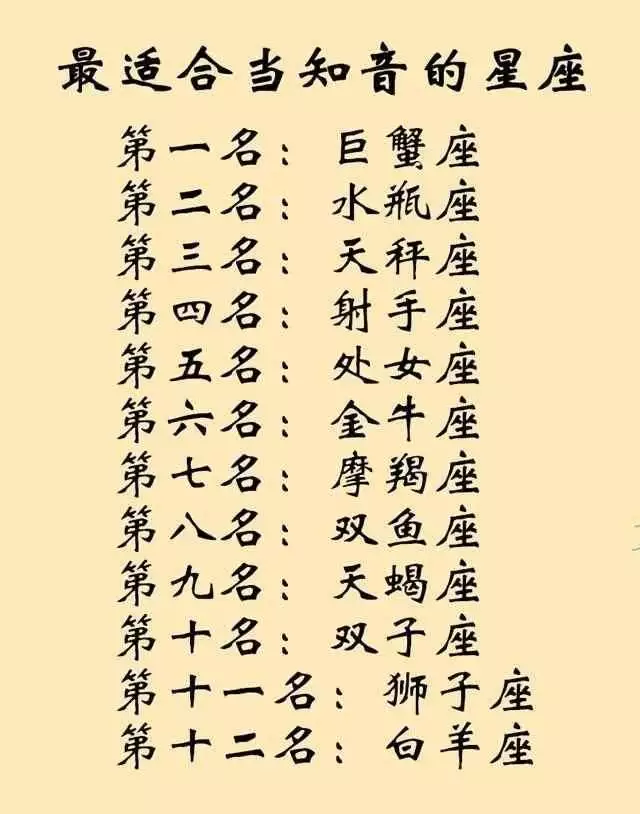 最适合当知音的星座
第一名：巨蟹座
第二名：水瓶座
第三名：天秤座
第四名：射手座
第五名：处女座
第六名：金牛座
第七名：摩羯座
第八名：双鱼座
第九名：天蝎座
第十名：双子座
第十一名：狮子座
第十二名：白羊座